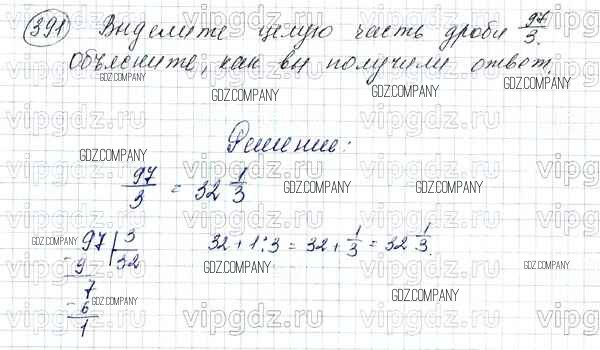 391 Выделите целую часть дроби 97/3.
Объясните, как вы получили ответ.
Решение:
97/3 = 32 1/3
97 | 3
- 9 | 32
7
- 6
1
32 + 1 : 3 = 32 + 1/3 = 32 1/3.
GDZ.COMPANY
vipgdz.ru